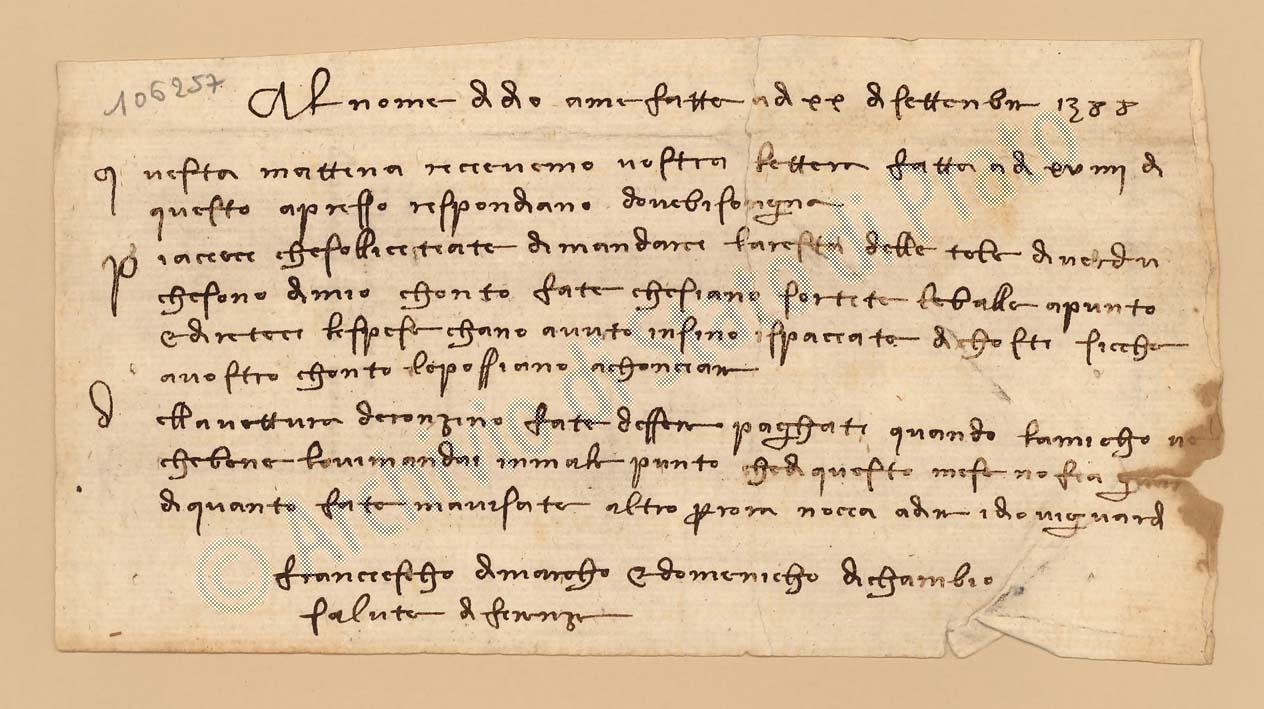 106257
Al nome di dio ame fatte adi xx di settenbre 1388
Questa mattena recevemo vostra lettera fatta adi xviiii di
questo apresso respondiano dovebisongna
Piacceci chesollicetiate dimandarci laresta delle tele diverdu
chesono dimio chonto fate chesiano sortite leballe apunto
& direteci lespese chano avuto insino ispacciate dichosti sicche
avostro chonto lepossiano achonciare
Della vettura deronzino fate dessere paghati quando lamicho
chebene lovimandai inmale punto chedi questo mese no fia
diquanto fate mavisate altro prora nocca adire idio vi guardi
francescho dimarcho & domenicho dichambio
salute di ferenze
© Archivio di Stato di Prato